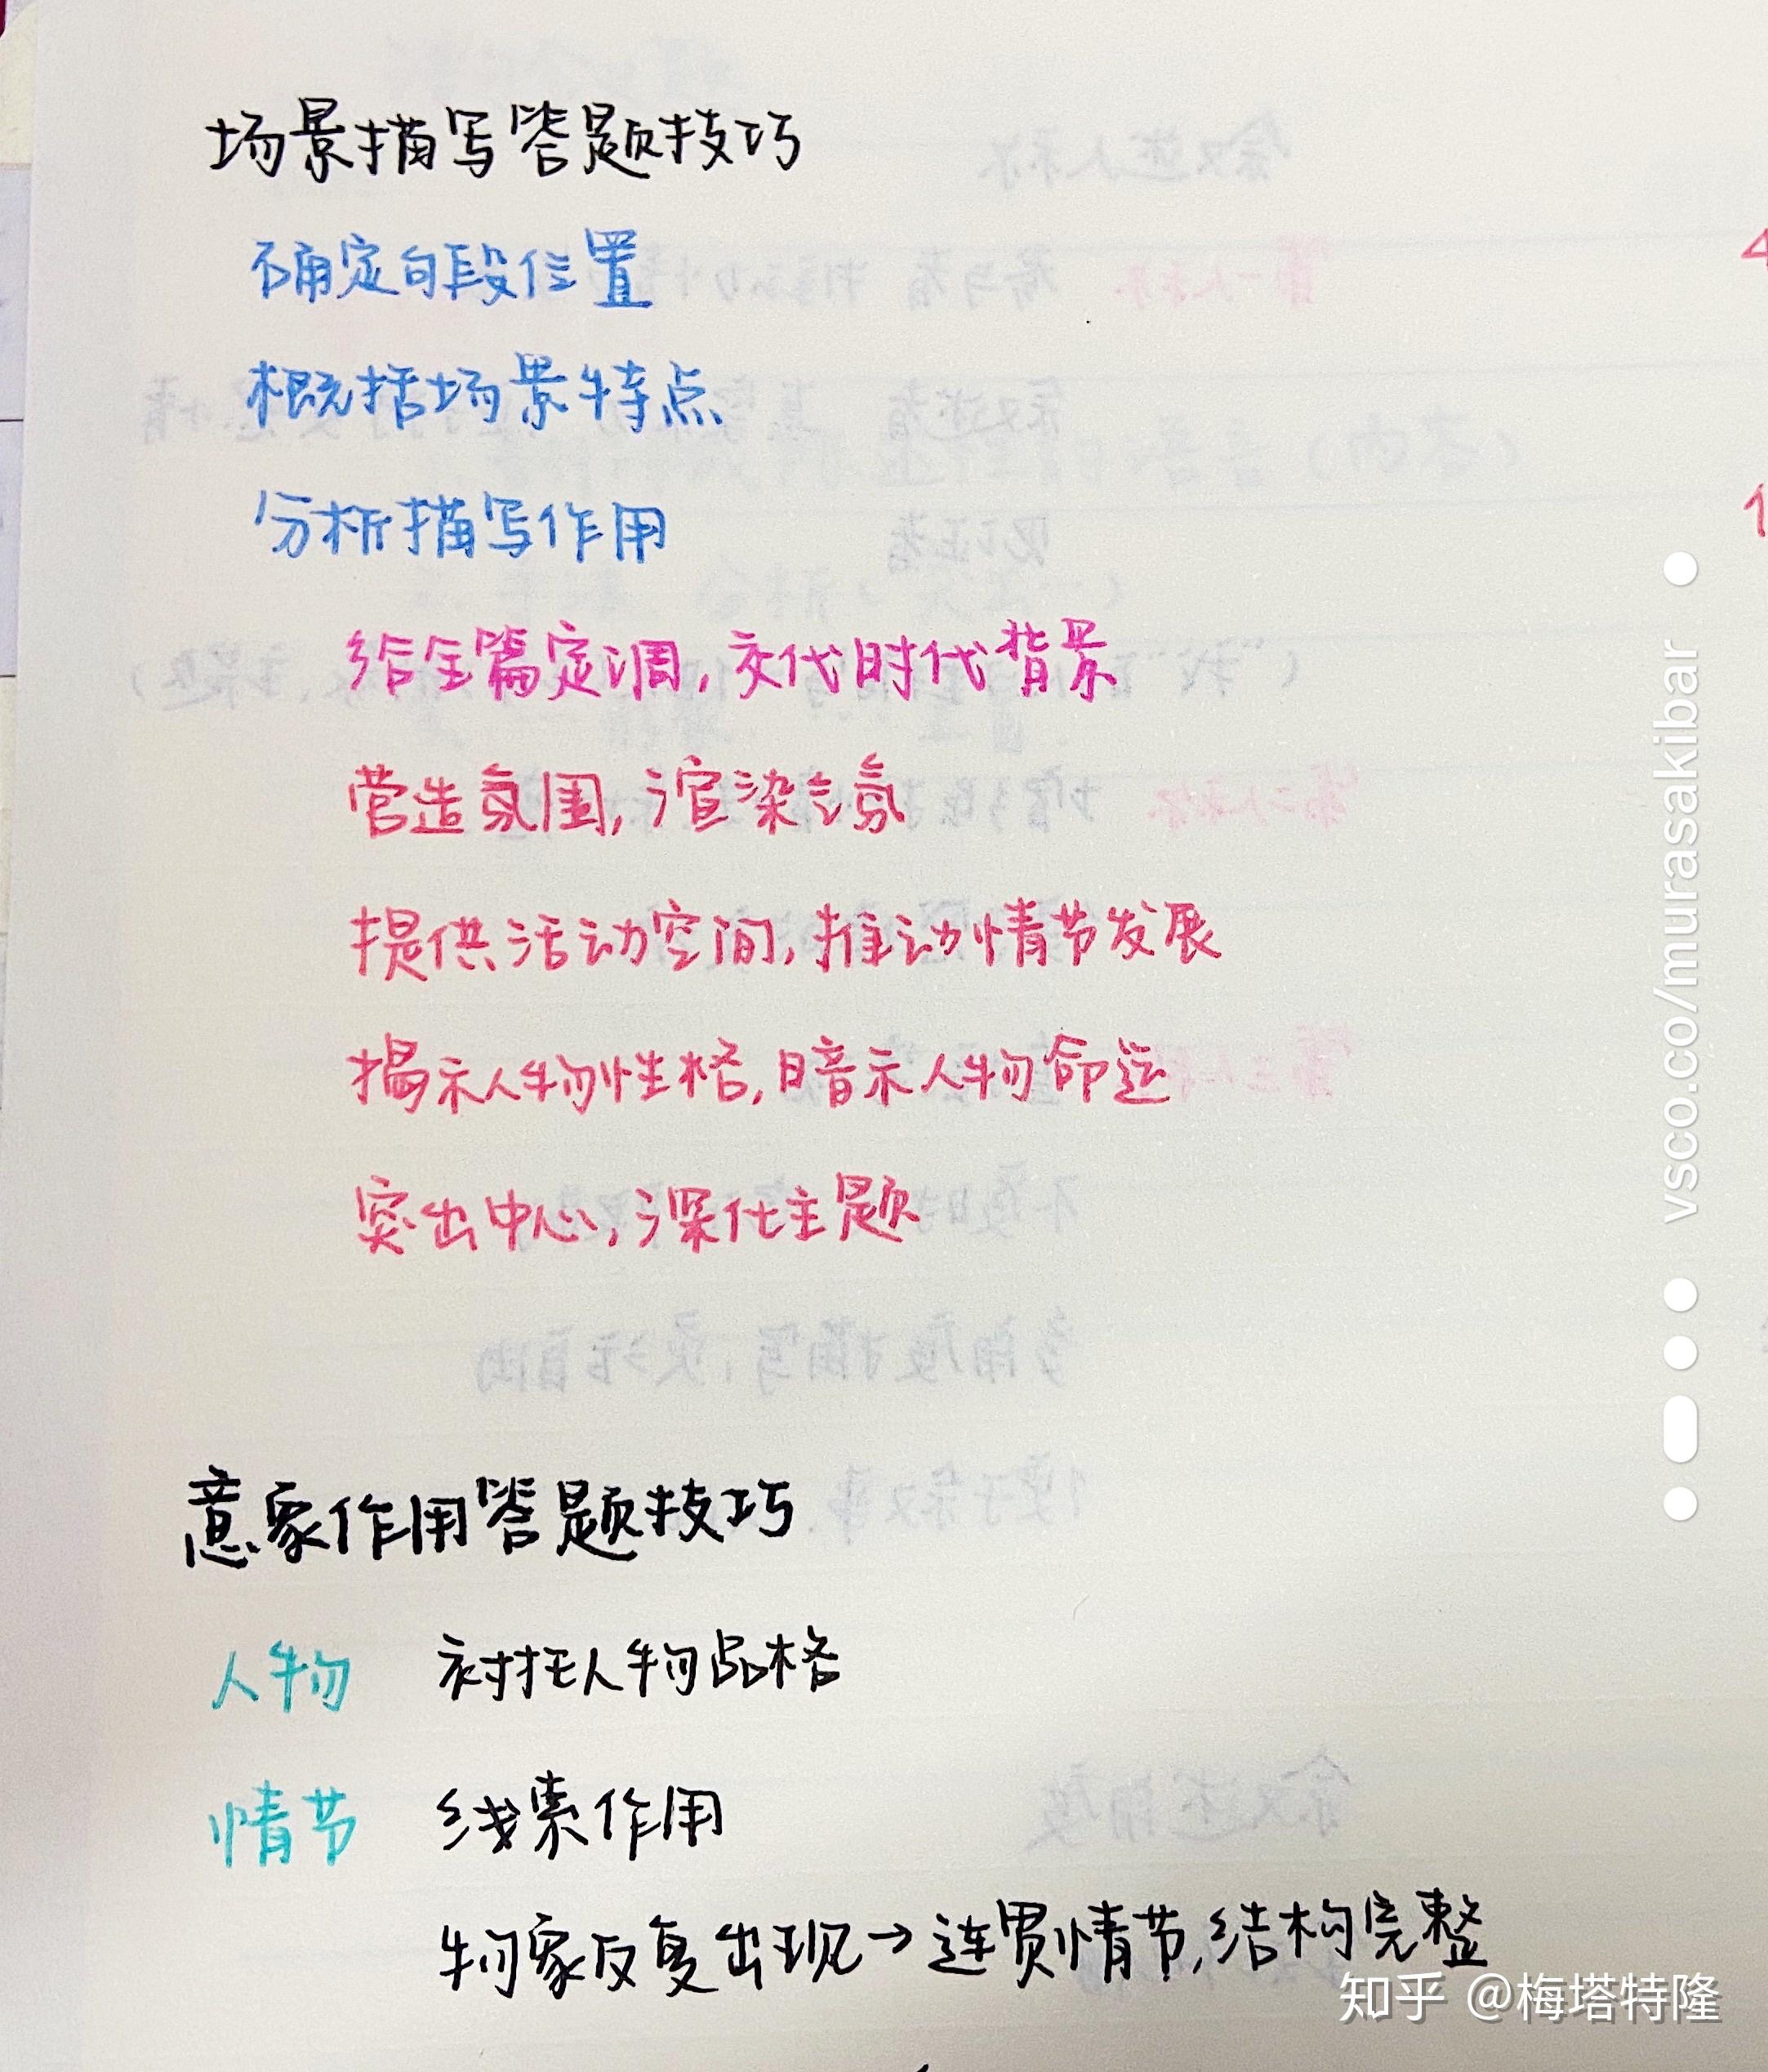 场景描写答题技巧
确定句段位置
概括场景特点
分析描写作用
给全篇定调,交代时代背景
营造氛围,渲染气氛
提供活动空间,推动情节发展
揭示人物性格,暗示人物命运
突出中心,深化主题
意象作用答题技巧
人物 衬托人物品格
情节 线索作用
物象反复出现→连贯情节,结构完整
vsco.co/murasakibar
知乎 @梅塔特隆